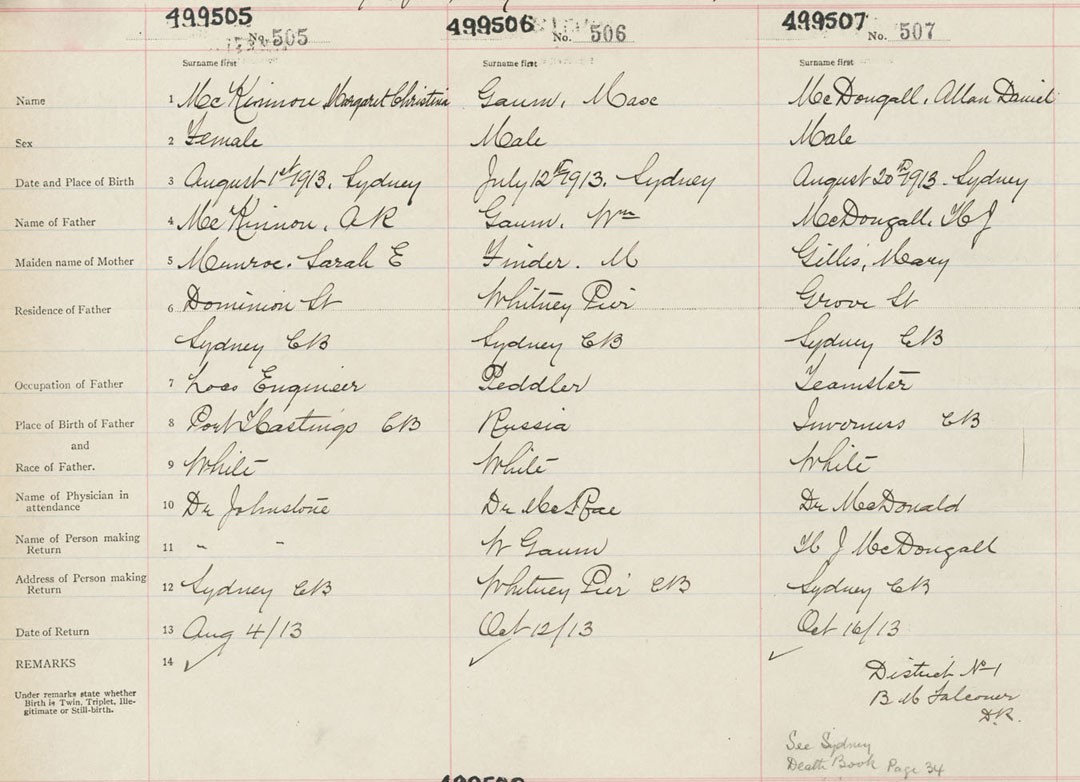 499505 499506 499507
No. 505 No. 506 No. 507
Surname first Surname first Surname first
Name 1 McKinnon Margaret Christina Gaum, Mase McDougall, Allan Daniel
Sex 2 Female Male Male
Date and Place of Birth 3 August 1st 1913, Sydney July 12th 1913, Sydney August 20th 1913 - Sydney
Name of Father 4 McKinnon, A R Gaum, Wm McDougall, H J
Maiden name of Mother 5 Munroe, Sarah E Finder. M Gillis, Mary
Residence of Father 6 Dominion St Whitney Pier Grove St
Sydney CB Sydney CB Sydney CB
Occupation of Father 7 Loco Engineer Peddler Teamster
Place of Birth of Father 8 Port Hastings CB Russia Inverness CB
and
Race of Father. 9 White White White
Name of Physician in
attendance 10 Dr Johnstone Dr McRae Dr McDonald
Name of Person making
Return 11 " " W Gaum H J McDougall
Address of Person making
Return 12 Sydney CB Whitney Pier CB Sydney CB
Date of Return 13 Aug 4/13 Oct 12/13 Oct 16/13
REMARKS 14 ✓ ✓ ✓
Under remarks state whether
Birth is Twin, Triplet, Ille-
gitimate or Still-birth.
District No 1
B M Falconer
D.R.
See Sydney
Death Book Page 34